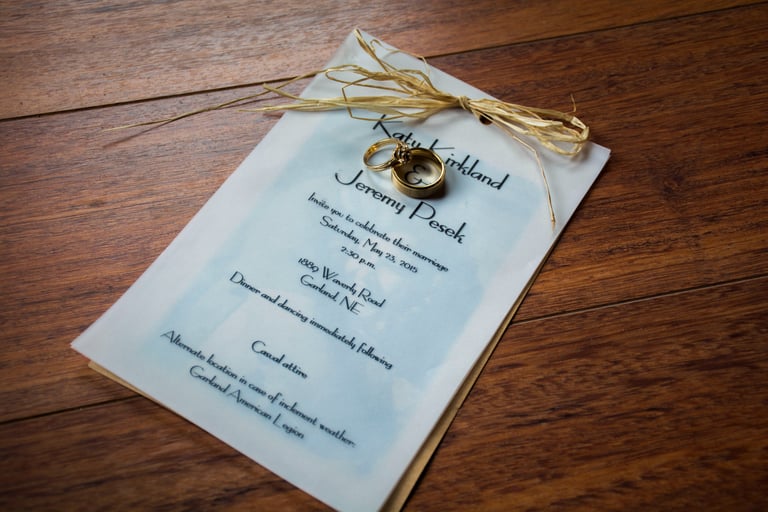 Katy Kirkland
&
Jeremy Pesek
Invite you to celebrate their marriage
Saturday, May 23, 2015
2:30 p.m.
1889 Waverly Road
Garland, NE
Dinner and dancing immediately following
Casual attire
Alternate location in case of inclement weather:
Garland American Legion